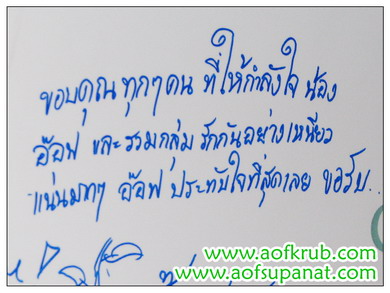 ขอบคุณ ทุกๆคน ที่ให้กำลังใจ น้อง
อ๊อฟ และรวมกลุ่ม รักกันอย่างเหนียว
แน่นมากๆ อ๊อฟ ประทับใจที่สุดเลย ขอรับ...
www.aofkrub.com
www.aofsupanat.com